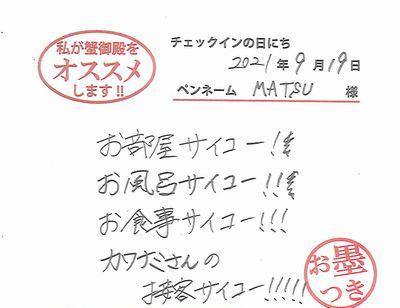 私が蟹御殿を
オススメ
します!!
チェックインの日にち
2021年9月19日
ペンネーム MATSU 様
お部屋サイコー!!
お風呂サイコー!!!
お食事サイコー!!!
カワナミさんの
お接客サイコー!!!!!
お墨
つき